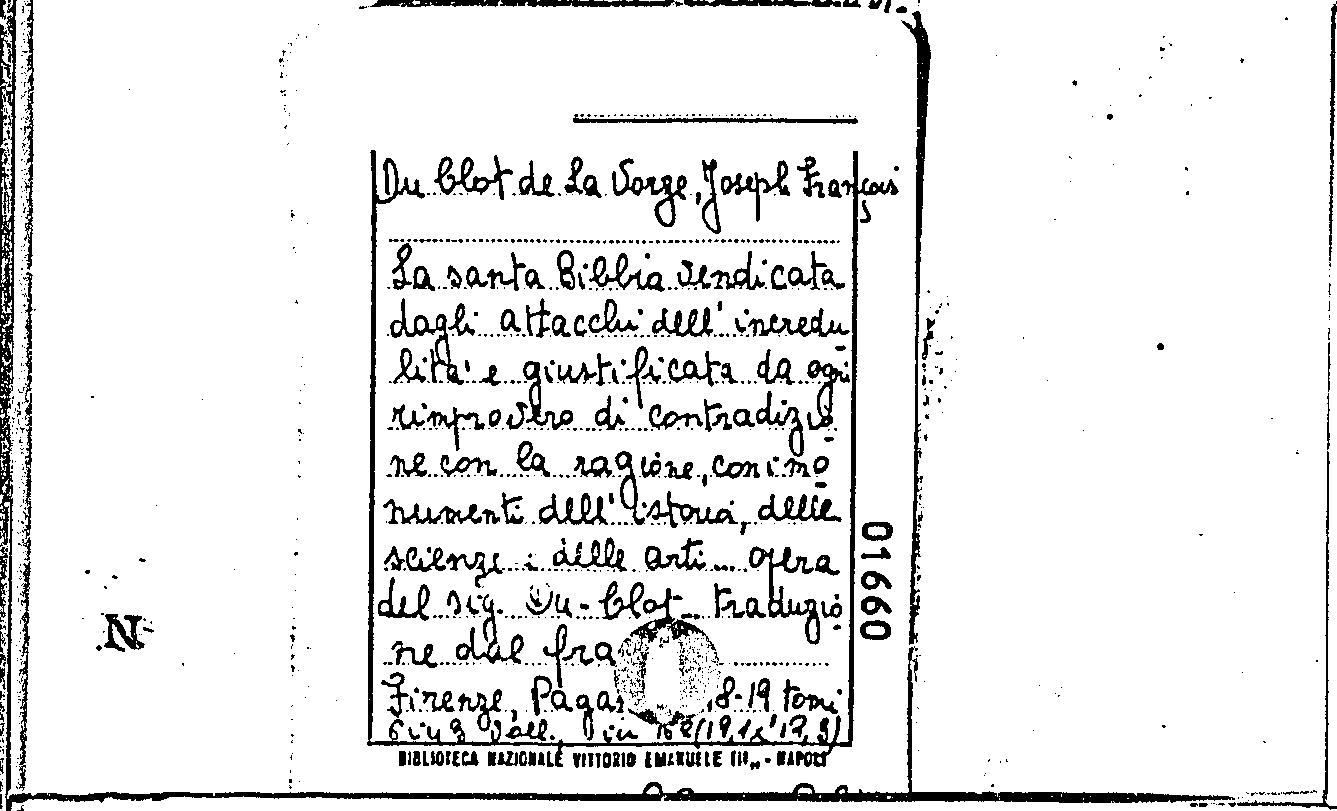 Du Clot de La Vorge, Joseph François
La santa Bibbia vendicata
dagli attacchi dell' incredu
lità e giustificata da ogni
rimprovero di contradizio
ne con la ragione, con i mo
numenti dell' istoria, delle
scienze i delle arti... opera
del sig. Du-Clot. Traduzio
ne dal fra
Firenze, Pagan 8-19 tomi
6 in 3 voll., in 16°
BIBLIOTECA NAZIONALE VITTORIO EMANUELE III„ - NAPOLI
01660
N